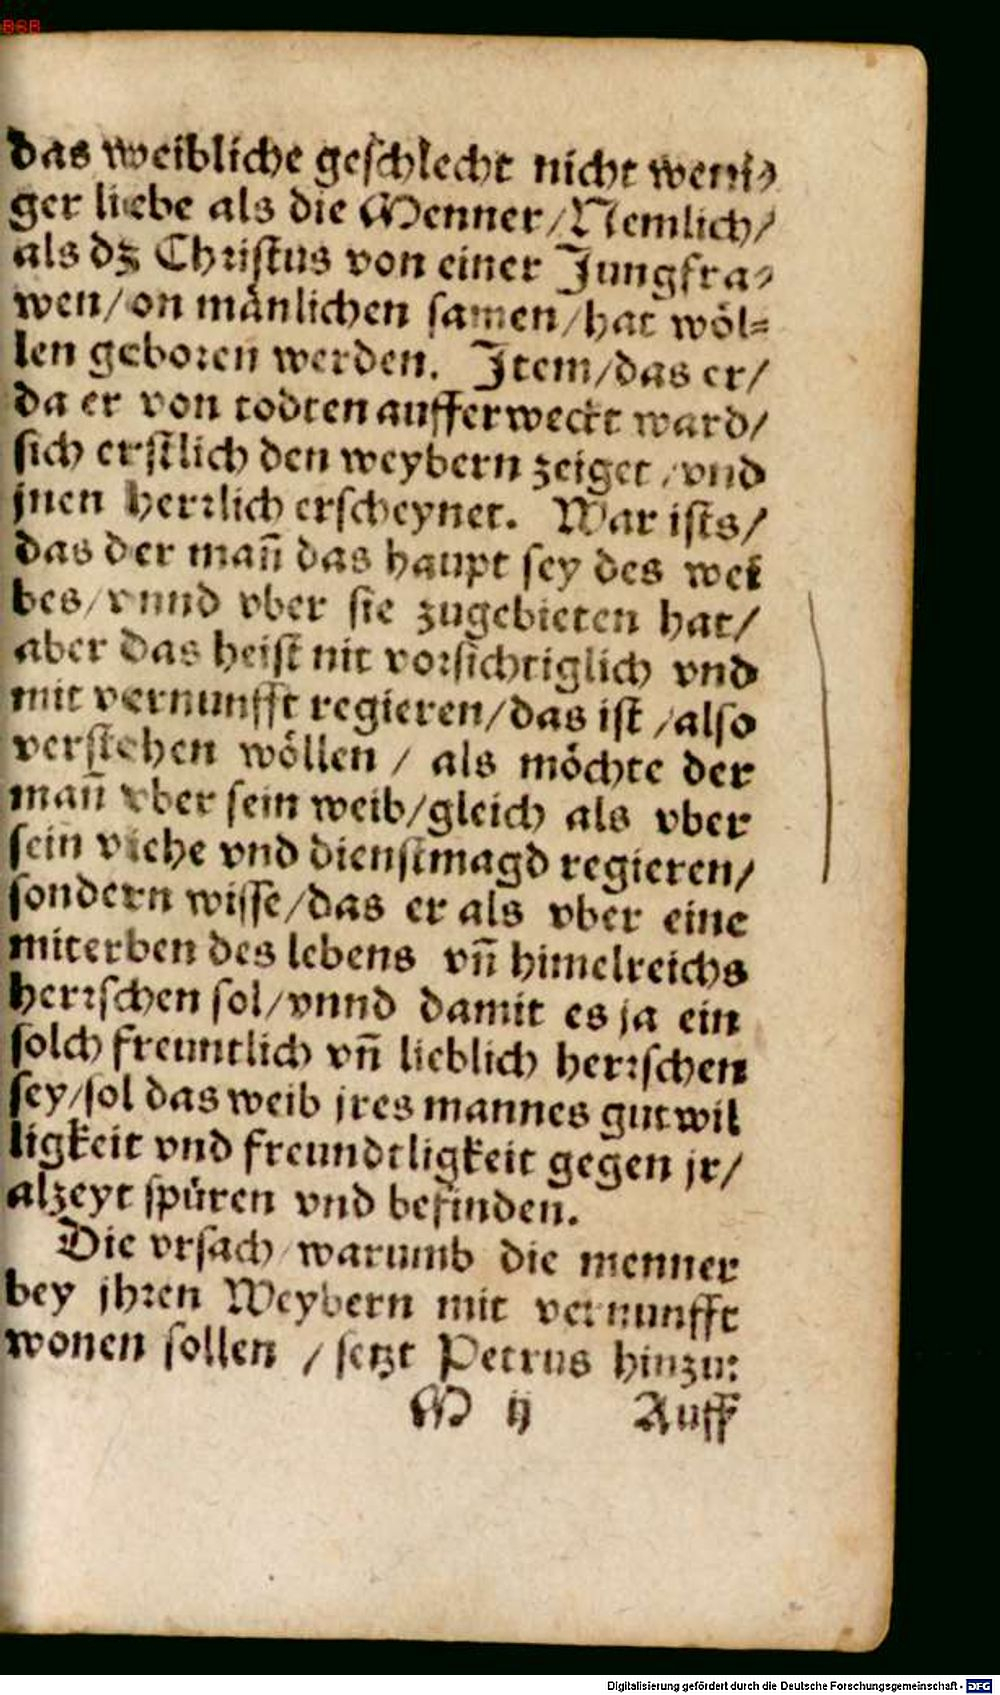 BSB
das weibliche geschlecht nicht weni⸗
ger liebe als die Menner/Nemlich/
als dz Christus von einer Jungfra⸗
wen/on mānlichen samen/hat wöl⸗
len geboren werden. Item/das er/
da er von todten aufferweckt ward/
sich erstlich den weybern zeiget/vnd
jnen herrlich erscheynet. War ists/
das der mañ das haupt sey des wei
bes/vnnd vber sie zugebieten hat/
aber das heist nit vorsichtiglich vnd
mit vernunfft regieren/das ist/also
verstehen wöllen/als möchte der
mañ vber sein weib/gleich als vber
sein viehe vnd dienstmagd regieren/
sondern wisse/das er als vber eine
miterben des lebens vñ himelreichs
herrschen sol/vnnd damit es ja ein
solch freuntlich vñ lieblich herrschen
sey/sol das weib jres mannes gutwil
ligkeit vnd freundtligkeit gegen jr/
alzeyt spüren vnd befinden.
Die vrsach/warumb die menner
bey jhren Weybern mit vernunfft
wonen sollen/setzt Petrus hinzu:
M ij Auff
Digitalisierung gefördert durch die Deutsche Forschungsgemeinschaft - DFG